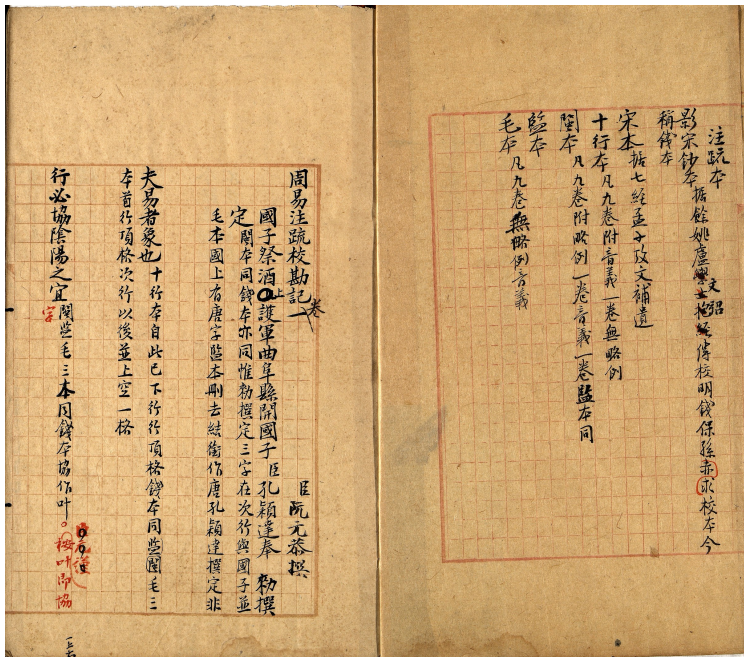 注疏本
影宋鈔本據餘姚盧文弨傳校明錢保孫求校本今
稱錢本
宋本據七經孟子攷文補遺
十行本凡九卷附音義一卷無略例
閩本凡九卷附略例一卷音義一卷監本同
監本
毛本凡九卷無略例音義
周易注疏校勘記卷一
臣阮元恭撰
國子祭酒上護軍曲阜縣開國子臣孔穎達奉 勑撰
定閩本同錢本亦同惟勑撰定三字在次行與國子並
毛本國上有唐字監本刪去結銜作唐孔穎達撰定非
夫易者象也十行本自此已下行行頂格錢本同監閩毛三
本首行頂格次行以後並上空一格
行必協陰陽之宜閩監毛三本同錢本協作叶。按叶即協
字